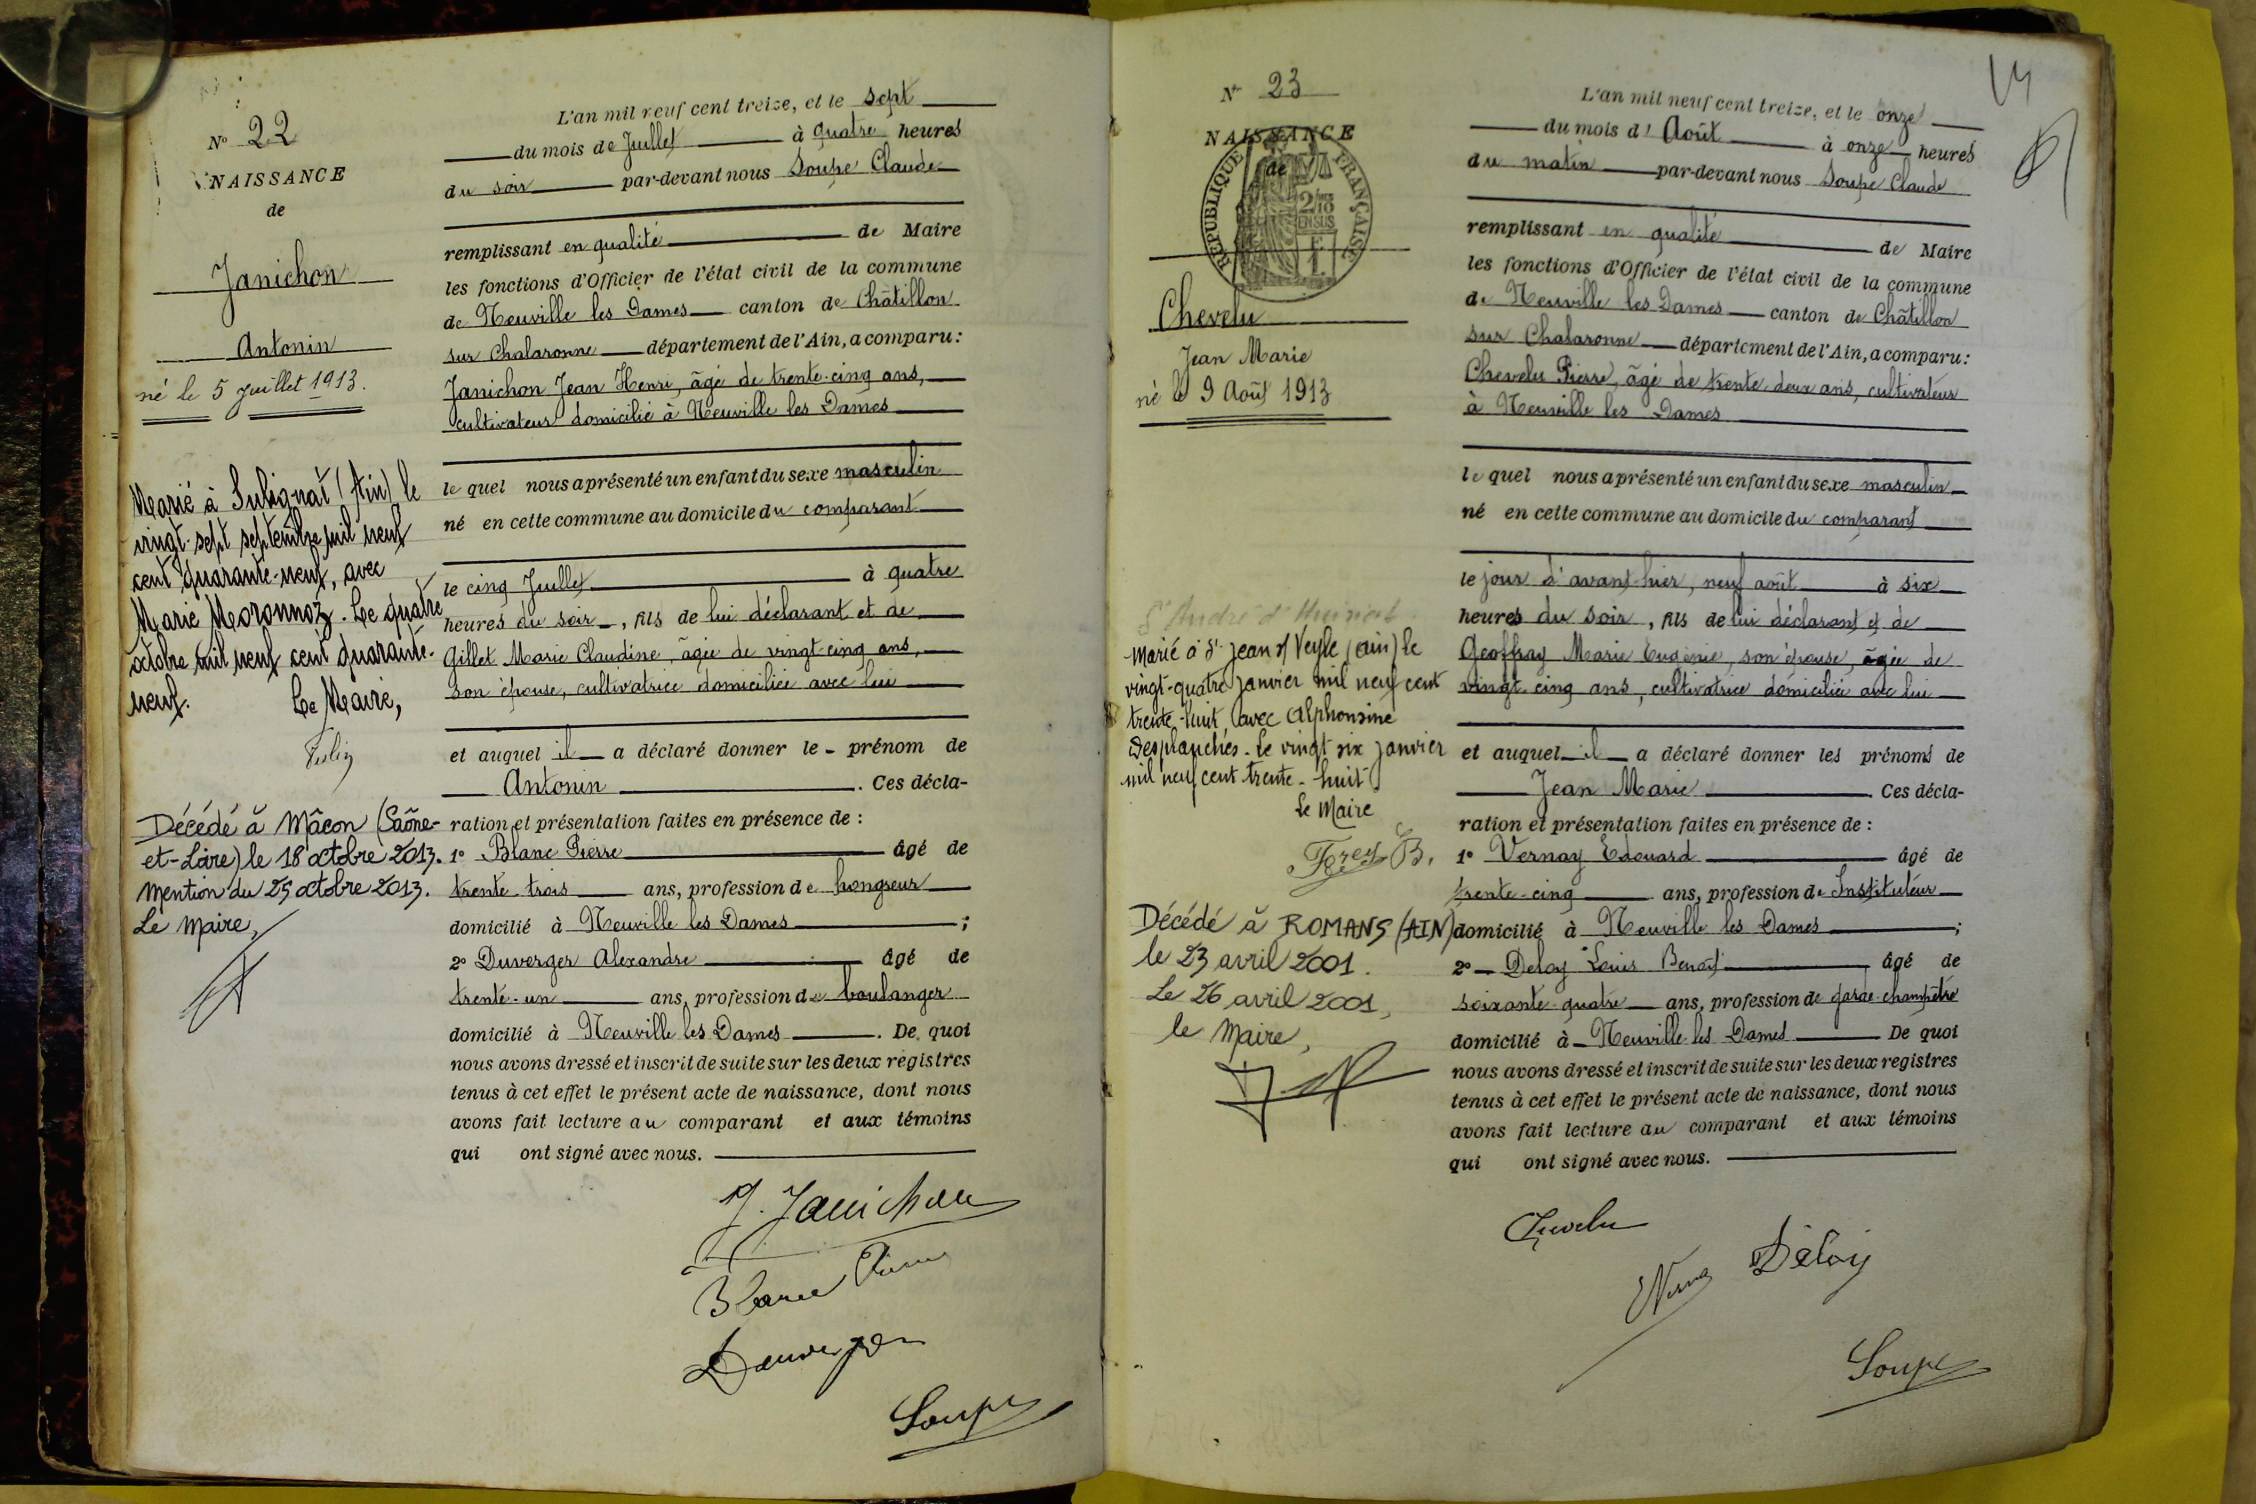 N° 22
NAISSANCE
de
Janichon
Antonin
né le 5 juillet 1913.
Marié à Sulignat (Ain) le
vingt-sept septembre mil neuf
cent quarante-neuf, avec
Marie Moronnoz. Le quatre
octobre mil neuf cent quarante-
neuf. Le Maire,
Décédé à Mâcon (Saône-
et-Loire) le 18 octobre 2013.
Mention du 25 octobre 2013.
Le Maire,
L'an mil neuf cent treize, et le sept
du mois de Juillet à quatre heures
du soir par-devant nous Soupe Claude
remplissant en qualité de Maire
les fonctions d'Officier de l'état civil de la commune
de Neuville les Dames canton de Châtillon
sur Chalaronne département de l'Ain, a comparu:
Janichon Jean Henri, âgé de trente-cinq ans,
cultivateur domicilié à Neuville les Dames
le quel nous a présenté un enfant du sexe masculin
né en cette commune au domicile du comparant
le cinq Juillet à quatre
heures du soir, fils de lui déclarant et de
Gillet Marie Claudine, âgée de vingt-cinq ans,
son épouse, cultivatrice domiciliée avec lui
et auquel il a déclaré donner le - prénom de
Antonin. Ces décla-
ration et présentation faites en présence de :
1° Blanc Pierre âgé de
trente-trois ans, profession de hongreur
domicilié à Neuville les Dames ;
2° Duverger Alexandre âgé de
trente-un ans, profession de boulanger
domicilié à Neuville les Dames. De quoi
nous avons dressé et inscrit de suite sur les deux registres
tenus à cet effet le présent acte de naissance, dont nous
avons fait lecture au comparant et aux témoins
qui ont signé avec nous.
J. Janichon
Blanc Pierre
Duverger
Soupe
N° 23
NAISSANCE
de
REPUBLIQUE FRANÇAISE
Chevelu
Jean Marie
né le 9 Août 1913
Marié à St Jean s/ Veyle (Ain) le
vingt-quatre janvier mil neuf cent
trente-huit avec Alphonsine
Desplanches. Le vingt six janvier
mil neuf cent trente-huit
Le Maire
Décédé à ROMANS (AIN)
le 23 avril 2001.
Le 26 avril 2001,
le Maire,
L'an mil neuf cent treize, et le onze
du mois d' Août à onze heures
du matin par-devant nous Soupe Claude
remplissant en qualité de Maire
les fonctions d'Officier de l'état civil de la commune
de Neuville les Dames canton de Châtillon
sur Chalaronne département de l'Ain, a comparu:
Chevelu Pierre, âgé de trente-deux ans, cultivateur
à Neuville les Dames
le quel nous a présenté un enfant du sexe masculin
né en cette commune au domicile du comparant
le jour d'avant-hier, neuf août à six
heures du soir, fils de lui déclarant et de
Geoffray Marie Eugénie, son épouse, âgée de
vingt-cinq ans, cultivatrice domiciliée avec lui
et auquel il a déclaré donner les prénoms de
Jean Marie. Ces décla-
ration et présentation faites en présence de :
1° Vernay Edouard âgé de
trente-cinq ans, profession de Instituteur
domicilié à Neuville les Dames ;
2° Deloy Louis Benoit âgé de
soixante-quatre ans, profession de garde-champêtre
domicilié à Neuville les Dames De quoi
nous avons dressé et inscrit de suite sur les deux registres
tenus à cet effet le présent acte de naissance, dont nous
avons fait lecture au comparant et aux témoins
qui ont signé avec nous.
Chevelu
Déloy
Soupe